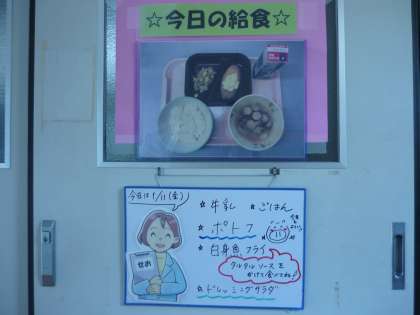 ☆今日の給食☆
今日は 1/11(金)
☆ 牛乳 ☆ ごはん
☆ ポトフ
☆ 白身魚フライ
タルタルソースを
かけて食べてね!
☆ ドレッシングサラダ